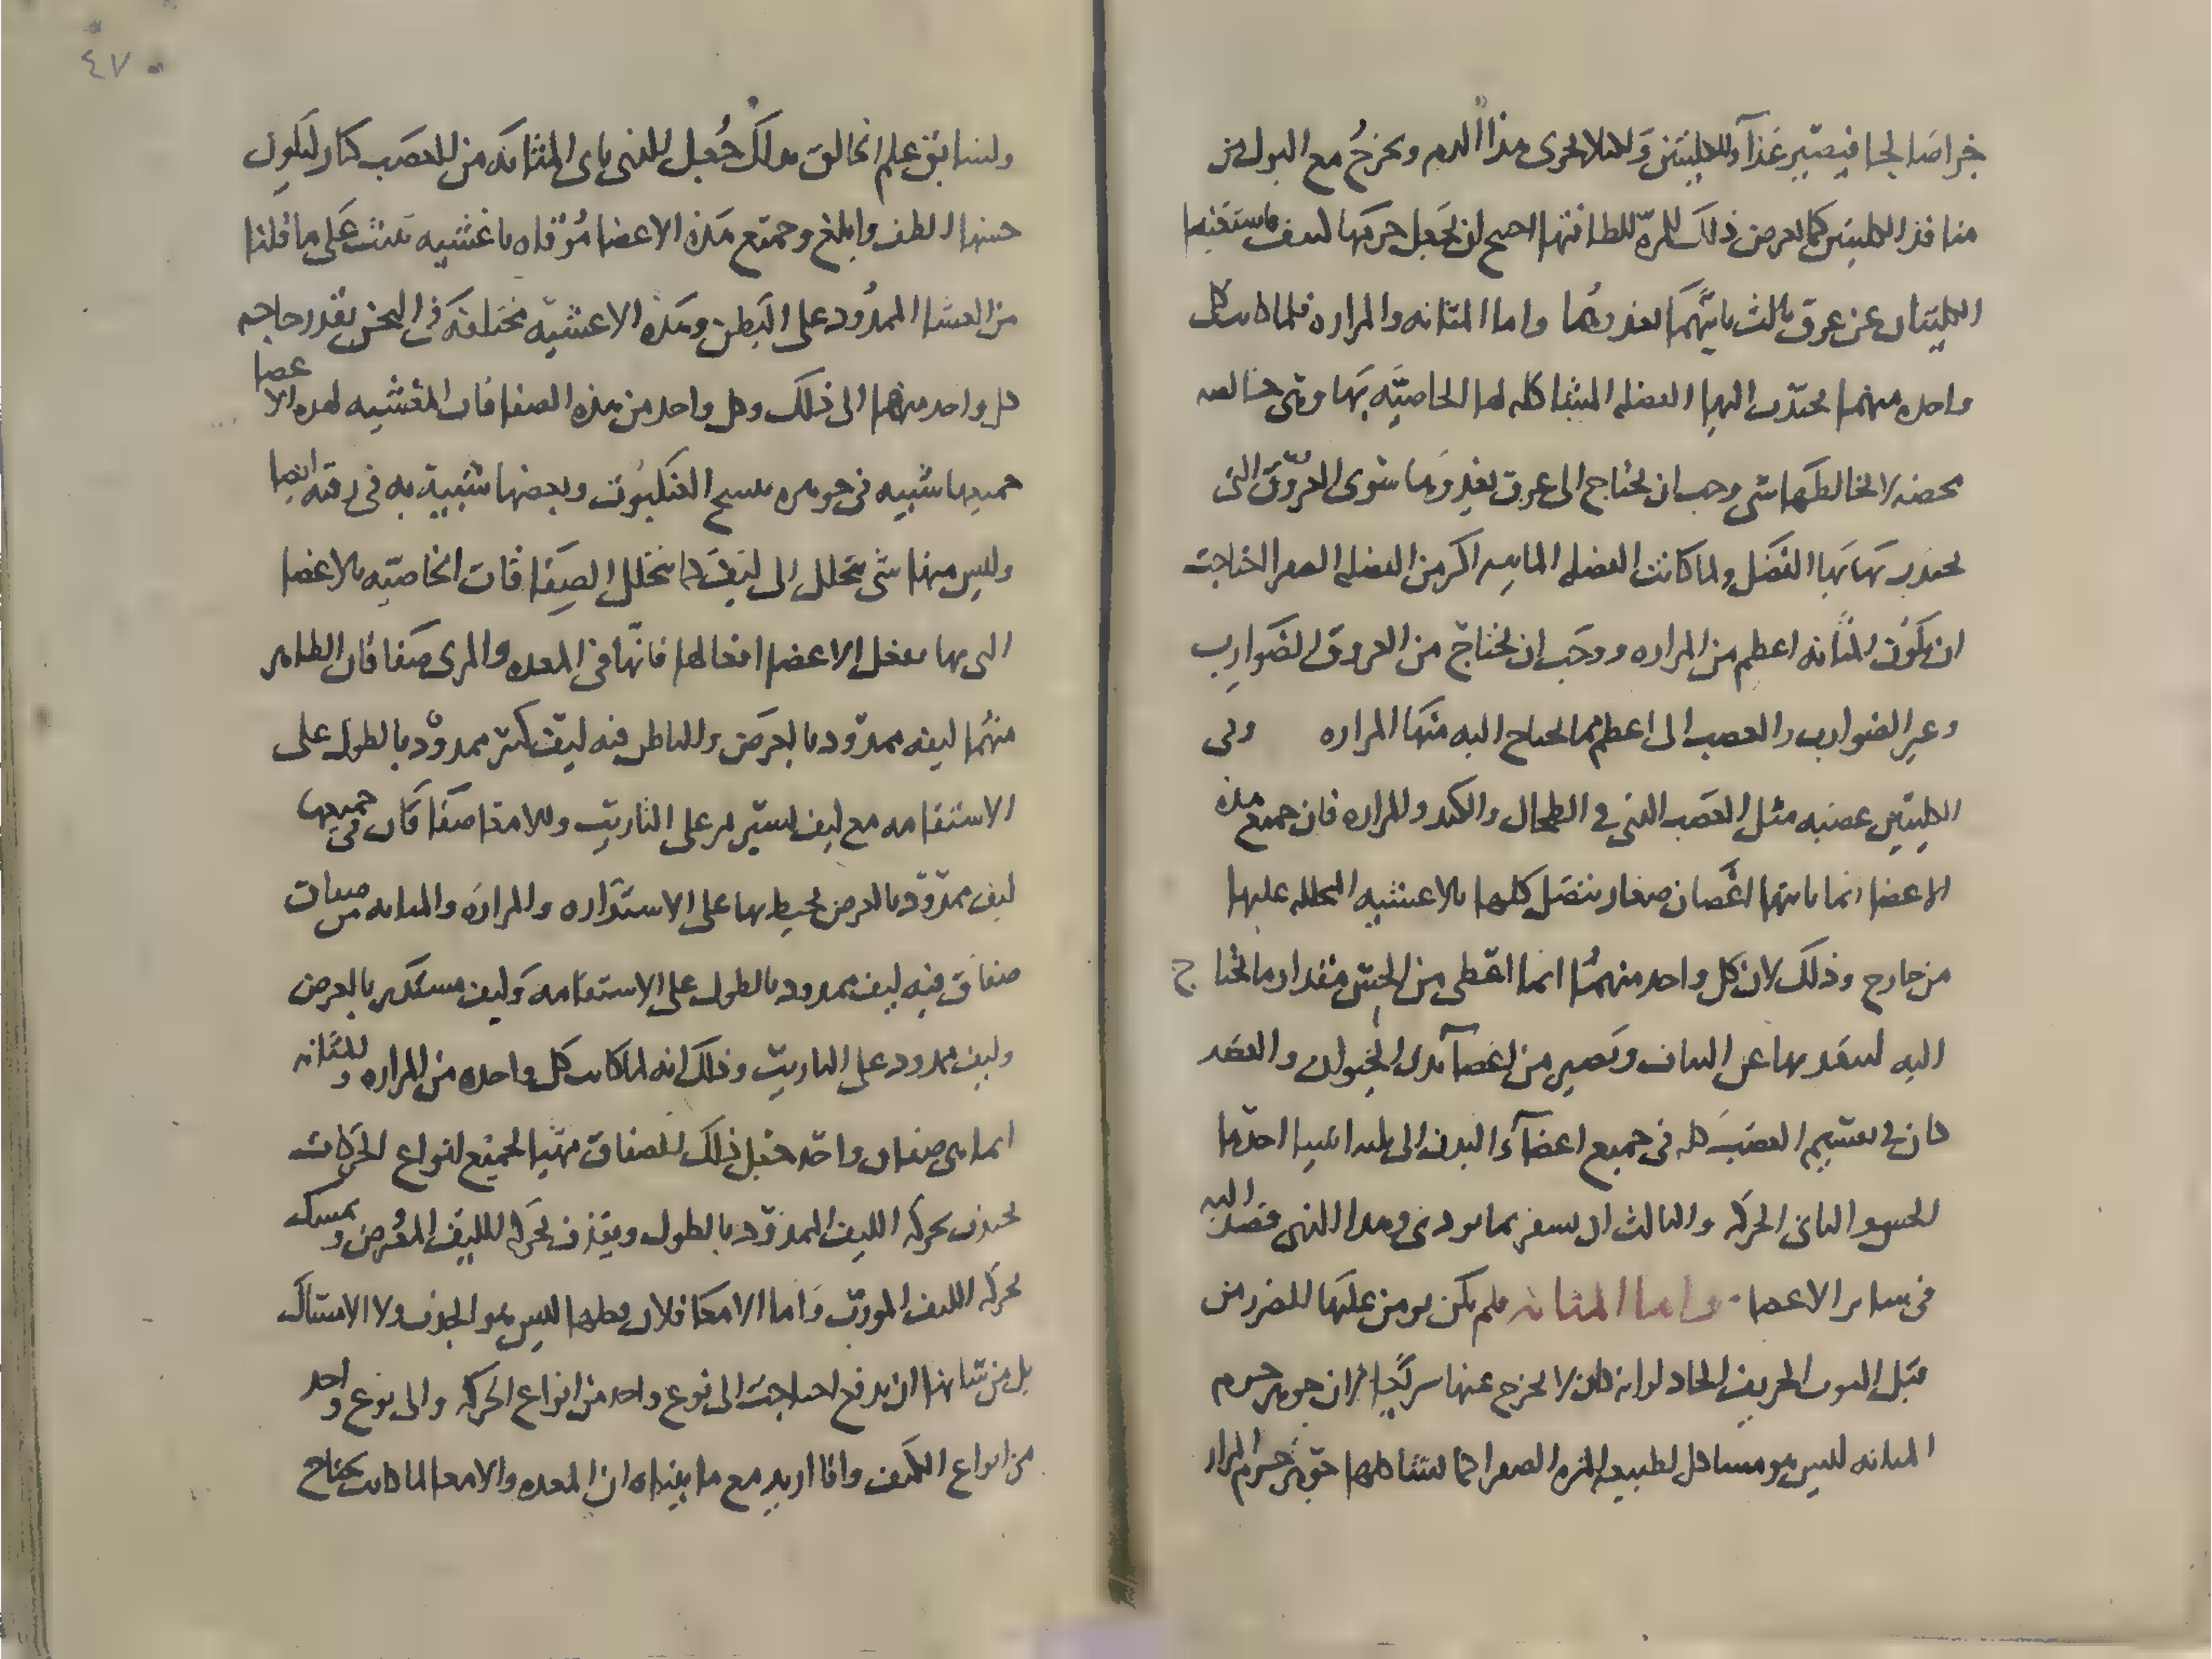 خراصا لحا فيصير غذآ وللكليتين ولئلا يجرى هذا الدم ويخرج مع البول من
منافذ الكليتين كما يعرض ذلك للمره للطافتها احتيج ان يجعل حركتها
الكليتان عن عرق ثالث ياتيهما يغذوهما واما المثانه والمراره فلما كانت كل
واحده منهما يجتذب اليها الفضله المشاكله لها الخاصيه بها وهى خالصه
محضه لا يخالطها شى وجب ان يحتاج الى عرق يغذوها سوى العروق التى
يجتذب بها الفضل ولما كانت الفضله المائيه اكثر من الفضله الصفرا احتاجت
ان تكون المثانه اعظم من المراره ووجب ان يحتاج من العروق الضوارب
وغير الضوارب والعصب الى اعظم مما يحتاج اليه منها المراره وفى
الكليتين عصبه مثل العصب الذى فى الطحال والكبد والمراره فان جميع هذه
الاعضا انما ياتيها اغصان صغار يتصل كلها بالاغشيه المجلله عليها
من خارج وذلك لان كل واحد منهما انما اعطى من الحس مقدار ما يحتاج
اليه لينفذ بها عن النبات وتصير من اعضآ بدن الحيوان والقصد
كان فى تقسيم العصب كله فى جميع اعضآء البدن الى ثلثه اشيا احدها
الحس والثانى الحركه والثالث ان يشعر بما يوذى وهذا الذى قصد اليه
فى ساير الاعضا واما المثانه فلم يكن يومن عليها الضرر من
قبل البول الحريف الحاد لو انه كان لا يخرج عنها سريعا لان جوهر جرم
المثانه ليس هو مشاكل لطبيعه المره الصفرا كما يشاكلها جوهر جرم المرار
٤٧
ولسابق علم الخالق بذلك جعل الذى ياتى المثانه من العصب كبار ليكون
حسها الطف وابلغ وجميع هذه الاعضا موقاه باغشيه تنبت على ما قلنا
من الغشا الممدود على البطن وهذه الاغشيه مختلفه فى الثخن بقدر حاجه
كل واحد منها الى ذلك وكل واحد من هذه الصفاقات المغشيه لهذه الاعضا
جميعها شبيه فى جوهره بنسج العنكبوت وبعضها شبيه به فى رقته ايضا
وليس منها شى يتحلل الى ليف كما يتحلل الصفاقات الخاصيه بالاعضا
التى بها تفعل الاعضا افعالها فانها فى المعده والمرى صفاقان الظاهر
منهما ليفه ممدود بالعرض والباطن فيه ليف كثير ممدود بالطول على
الاستقامه مع ليف يسير مر على التاريب وللامعا صفاقان فى جميعها
ليف ممدود بالعرض يحيط بها على الاستداره والمراره والمثانه من
صفاق فيه ليف ممدود بالطول على الاستقامه وليف مستدير بالعرض
وليف ممدود على التاريب وذلك انه لما كانت كل واحده من المراره والمثانه
انما هى صفاق واحد جعل ذلك الصفاق مهيا لجميع انواع الحركات
يجذب بحركه الليف الممدود بالطول ويقذف بحركه الليف المعرض ويمسك
بحركه الليف المورب واما الامعا فلان فعلها ليس هو الجذب ولا الامساك
بل من شانها ان تدفع احتاجت الى نوع واحد من انواع الحركه والى نوع واحد
من انواع الليف وانا اريد مع ما بيناه ان المعده والامعا لما كانت تحتاج